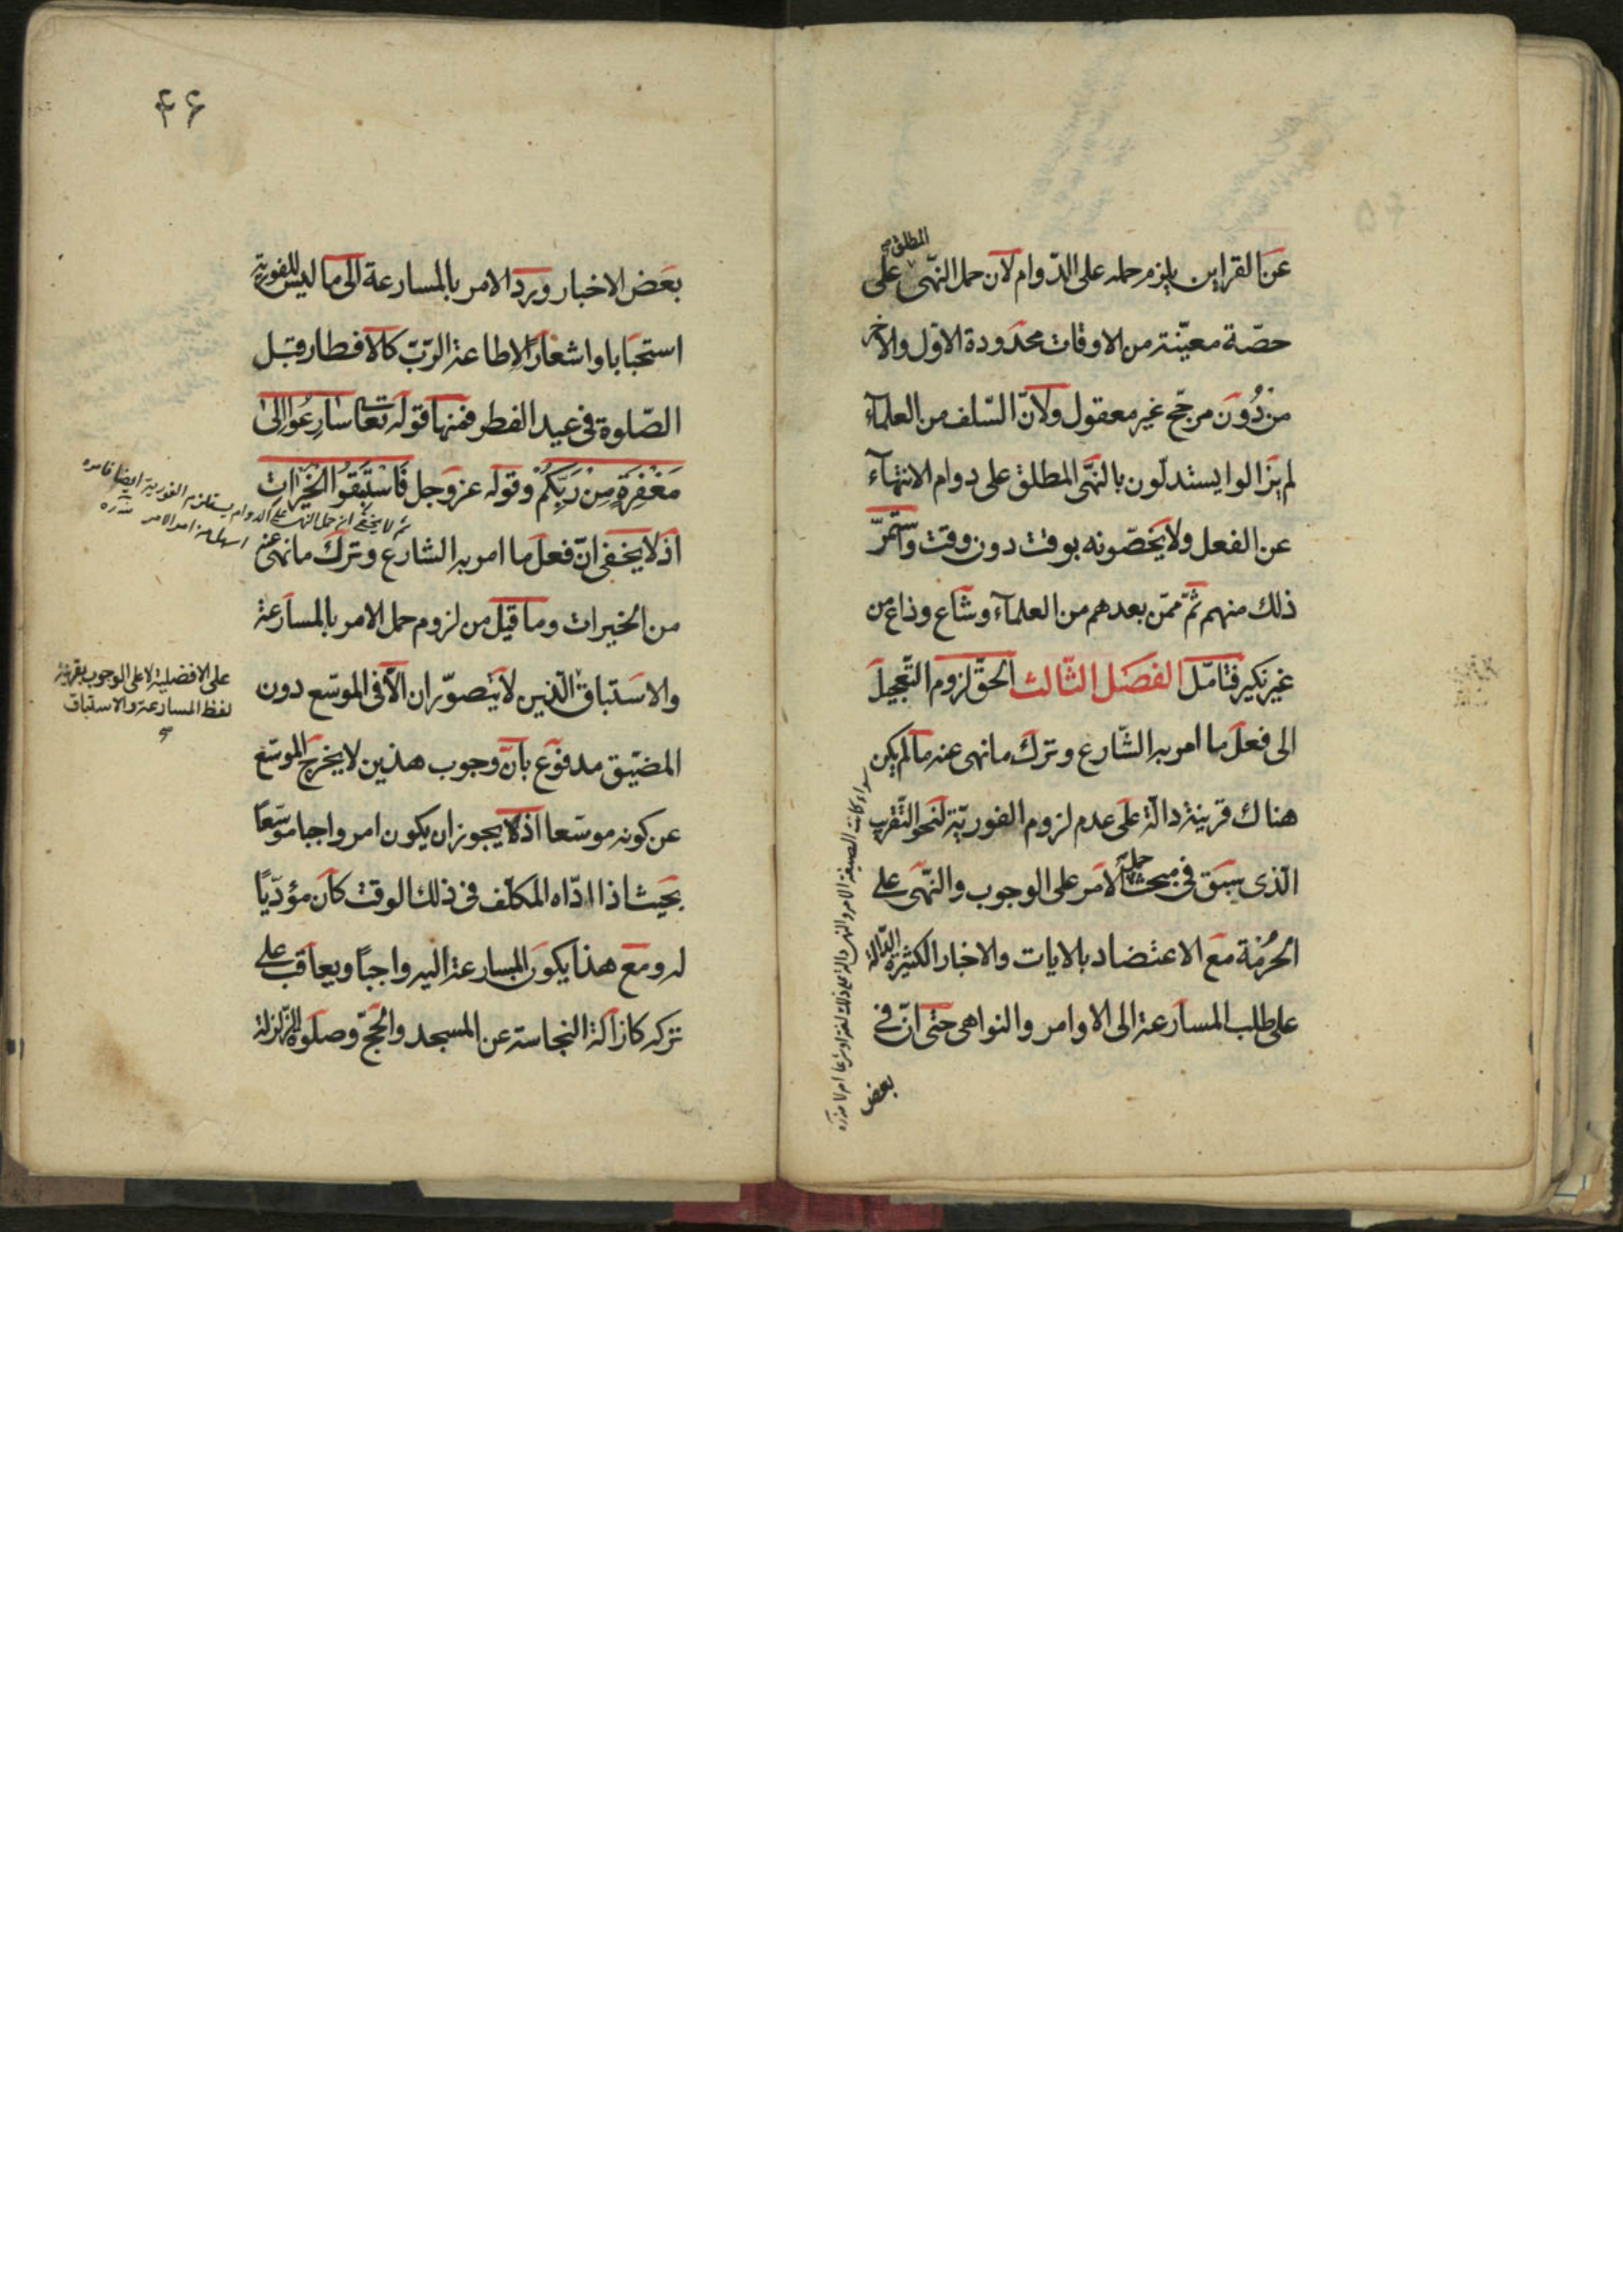 عن القراين يلزم حمله على الدّوام لان حمل النّهى المطلق على
حصّة معيّنة من الاوقات محدودة الاوّل والاخر
من دُون مرجّح غير معقول ولانّ السّلف من العلمآء
لم يزالوا يستدلّون بالنّهى المطلق على دوام الانتهآء
عن الفعل ولا يخصّصونه بوقت دون وقت واستمرّ
ذلك منهم ثمّ ممّن بعدهم من العلمآء وشاع وذاع من
غير نكير فتامّل الفصل الثّالث الحقّ لزوم التّعجيل
الى فعل ما امر به الشّارع وترك ما نهى عنه ما لم يكن
هناك قرينة دالّة على عدم لزوم الفوريّة لنحو التّقريب
الّذى سبق فى مبحث حمل الامر على الوجوب والنّهى على
الحُرمَة مع الاعتضاد بالايات والاخبار الكثيرة الدّالة
على طلب المسارعة الى الاوامر والنواهى حتى انّ فى
بعض
سواء كانت الصيغة الامر والنهى
۴۶
بعض الاخبار ورد الامر بالمسارعة الى ما ليس للفوريّة
استحبابا واشعارًا لاطاعة الربّ كالافطار قبل
الصّلوة فى عيد الفطر فمنها قوله تعا سَارِعُوا اِلىٰ
مَغْفِرَةٍ مِنْ رَبِّكُمْ وقوله عزوجل فَاسْتَبِقُوا الْخَيْرَاتِ
اذ لا يخفى انّ فعل ما امر به الشارع وترك ما نهى عنه
من الخيرات وما قيل من لزوم حمل الامر بالمسارعة
والاستباق الّذين لا يتصوّران الّا فى الموسّع دون
المضيّق مدفوع بانّ وجوب هذين لا يخرج الموسّع
عن كونه موسّعا اذ لا يجوز ان يكون امر واجبا موسّعًا
بحيث اذا ادّاه المكلّف فى ذلك الوقت كان مؤدّيًا
له ومع هذا يكون المسارعة اليه واجبًا ويعاقب على
تركه كازالة النجاسة عن المسجد والحجّ وصلوة الزلزلة
ثم لا يخفى ان حمل النهى على الدوام يستلزم الفورية ايضا
على الافضلية لا على الوجوب بقرينة
لفظ المسارعة والاستباق